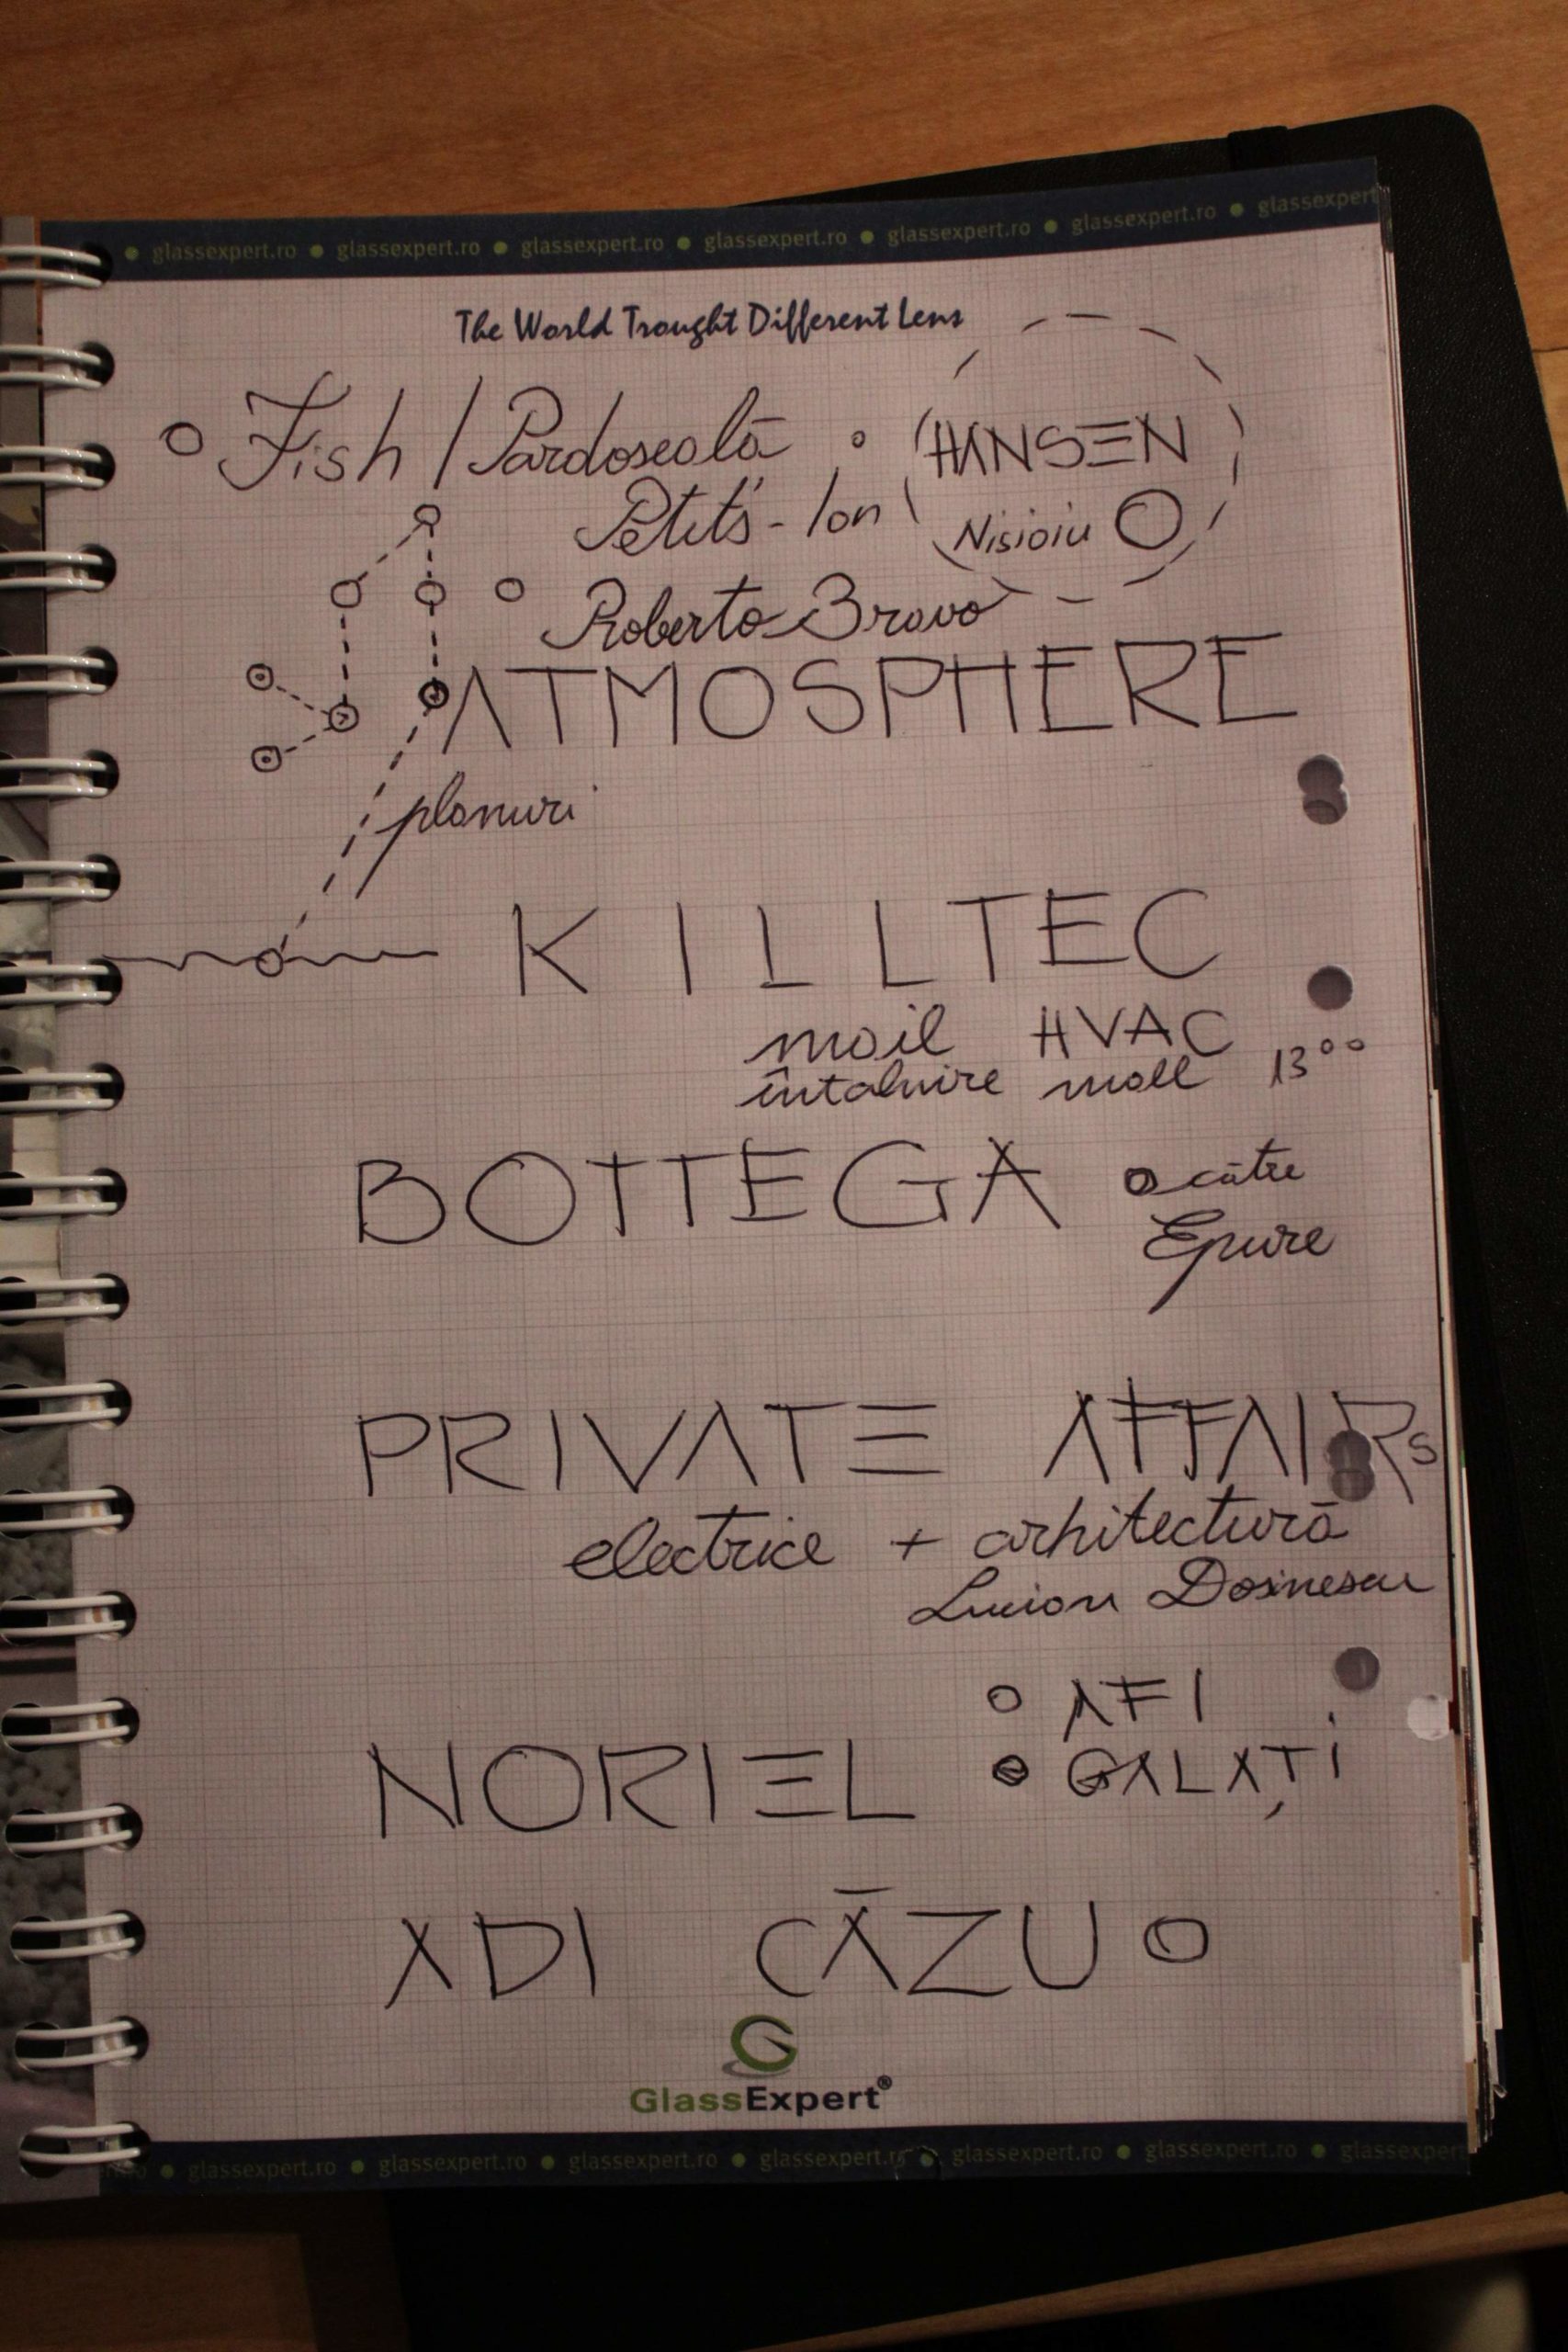 • glassexpert.ro • glassexpert.ro • glassexpert.ro • glassexpert.ro • glassexpert.ro • glassexpert.ro • glassexpert
The World Trought Different Lens
Fish / Pardoseală
HANSEN
Petit's - Ion
Nisioiu
Roberto Bravo
ATMOSPHERE
planuri
KILLTEC
mail HVAC
întalnire mall 13°°
BOTTEGA
către
Epure
PRIVATE AFFAIRs
electrice + arhitectură
Lucian Dosinescu
AFI
NORIEL
GALAȚI
ADI CĂZU
GlassExpert®
• glassexpert.ro • glassexpert.ro • glassexpert.ro • glassexpert.ro • glassexpert.ro • glassexpert.ro • glassexpert